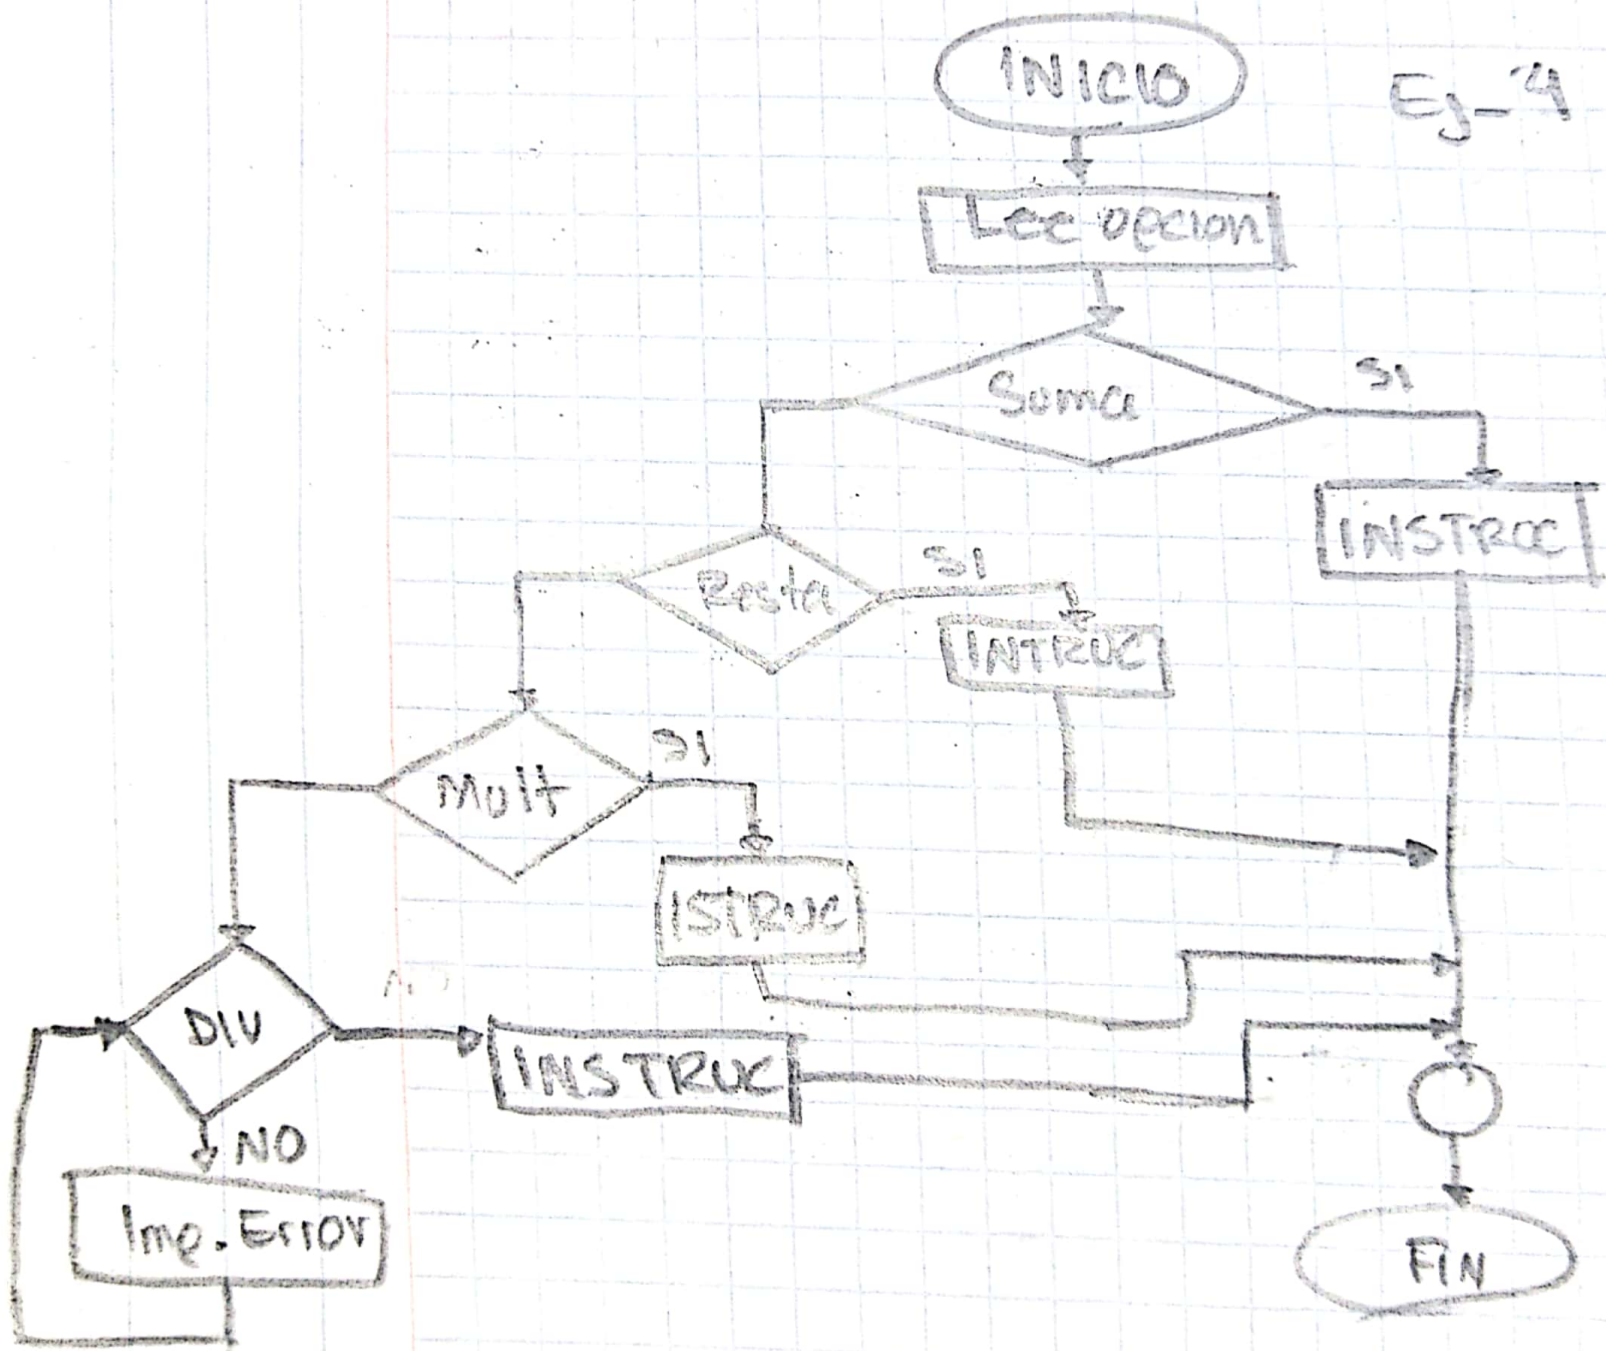 INICIO
Lee opcion
Suma
SI
INSTRUC
Resta
SI
INTRUC
Mult
SI
ISTRUC
DIV
INSTRUC
NO
Imp. Error
FIN